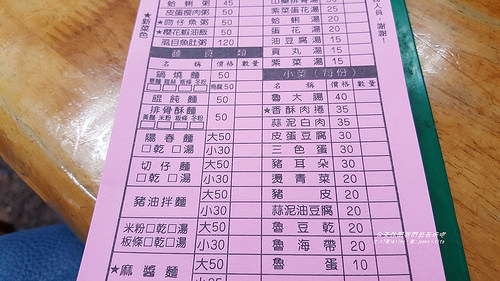 ★新菜色
蛤蜊粥 45
皮蛋瘦肉粥 50
★吻仔魚粥 50
★櫻花蝦油飯 50
虱目魚肚粥 120
麵食類
名稱 價格 數量
鍋燒麵 50
烏龍50
餛飩麵 50
排骨酥麵 50
陽春麵 大50
□乾□湯 小30
切仔麵 大50
□乾□湯 小30
豬油拌麵 大50
小30
米粉□乾□湯 大50
板條□乾□湯 小30
★麻醬麵 大50
紫菜蛋湯 25
蛤蜊湯 30
蛋花湯 20
油豆腐湯 15
貢丸湯 15
紫菜湯 15
小菜(每份)
名稱 價格 數量
魯大腸 40
★香酥肉捲 35
蒜泥白肉 35
皮蛋豆腐 30
三色蛋 30
豬耳朵 30
燙青菜 20
豬皮 20
蒜泥油豆腐 20
魯豆乾 20
魯海帶 20
魯蛋 10
人員,謝謝!